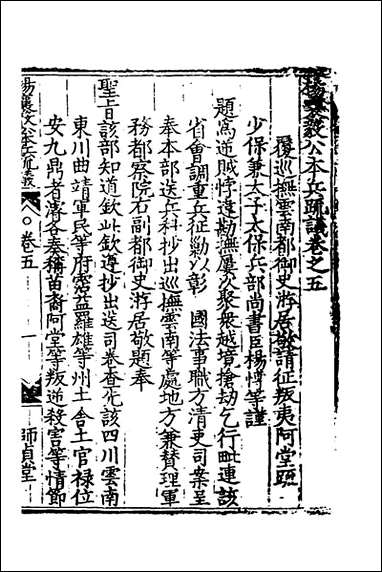 楊襄毅公本兵疏議卷之五
覆巡撫雲南都御史游居敬請征叛夷阿堂疏
少保兼太子太保兵部尚書臣楊博等謹
題爲逆賊悖違勘撫屢次聚衆越境搶劫乞行毗連該
省會調重兵征勦以彰 國法事職方清吏司案呈
奉本部送兵科抄出巡撫雲南等處地方兼贊理軍
務都察院右副都御史游居敬題奉
聖旨該部知道欽此欽遵抄出送司卷查先該四川雲南
東川曲靖軍民等府霑益羅雄等州土舍土官祿位
安九鼎者濬各奏稱苗裔阿堂等叛逆殺害等情節
楊襄毅公本兵疏議
卷五
一
師貞堂